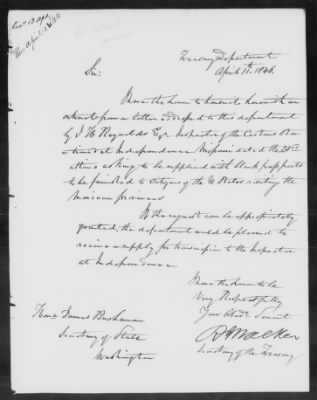 Treasury Department
April 11th 1846.
Sir:
I have the honor to transmit herewith an
extract from a letter addressed to this department
by J. H. Reynolds Esqr Inspector of the Customs
at Independence Missouri dated the
asking to be supplied with blank passports
to be furnished to Citizens of the U States visiting the
Mexican provinces
If the request can be appropriately
granted, the department would be pleased to
receive a supply for transmission to the Inspector
at Independence
I have the honor to be
Very Respectfully
Your Obdt Servant
R J Walker
Secretary of the Treasury
Honle James Buchanan
Secretary of State
Washington